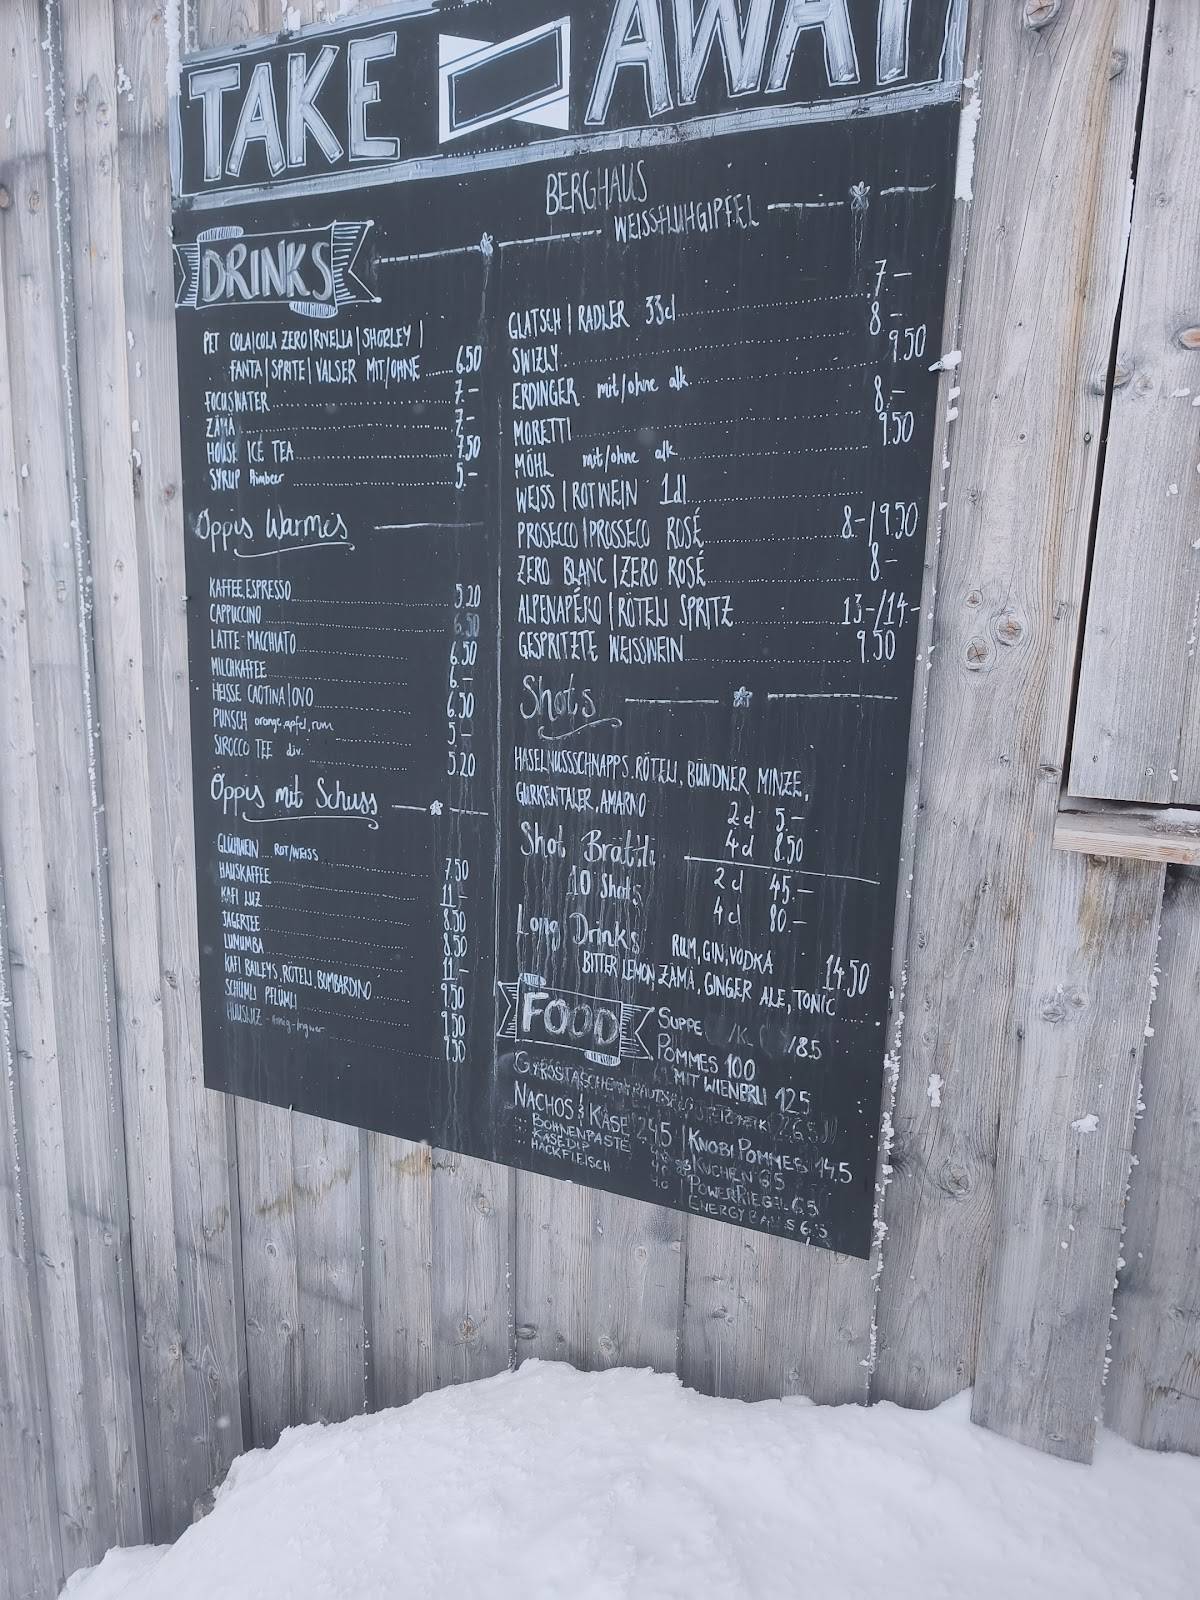 TAKE AWAY
BERGHAUS
WEISSFLUHGIPFEL
DRINKS
PET COLA|COLA ZERO|RIVELLA|SHORLEY|
FANTA|SPRITE|VALSER MIT/OHNE 6.50
FOCUSWATER 7.-
ZÄMÄ 7.-
HOUSE ICE TEA 7.50
SYRUP Himbeer 5.-
Öppis Warmes
KAFFEE, ESPRESSO 5.20
CAPPUCCINO 6.50
LATTE-MACCHIATO 6.50
MILCHKAFFEE 6.-
HEISSE CAOTINA|OVO 6.50
PUNSCH orange, apfel, rum 5.-
SIROCCO TEE div. 5.20
Öppis mit Schuss
GLÜHWEIN ROT/WEISS 7.50
HAUSKAFFEE 11.-
KAFI LUZ 8.50
JAGERTEE 8.50
LUMUMBA 11.-
KAFI BAILEYS, RÖTELI, BOMBARDINO 9.50
SCHÜMLI PFLÜMLI 9.50
HUUSLUZ - Honig-Ingwer 9.50
GLATSCH | RADLER 33cl 7.-
SWIZLY 8.-
ERDINGER mit/ohne alk. 9.50
MORETTI 8.-
MÖHL mit/ohne alk. 9.50
WEISS | ROTWEIN 1dl
PROSECCO | PROSSECO ROSÉ 8.-/9.50
ZERO BLANC | ZERO ROSÉ 8.-
ALPENAPÉRO | RÖTELI SPRITZ 13.-/14.-
GESPRITZTE WEISSWEIN 9.50
Shots
HASELNUSSSCHNAPPS, RÖTELI, BÜNDNER MINZE,
GURKENTALER, AMARNO 2cl 5.-
4cl 8.50
Shot Brättli
10 Shots 2cl 45.-
4cl 80.-
Long Drinks RUM, GIN, VODKA
BITTER LEMON, ZÄMÄ, GINGER ALE, TONIC 14.50
FOOD
SUPPE /8.5
POMMES 10.0
MIT WIENERLI 12.5
GYROSTASCHE
NACHOS & KÄSE 24.5 | KNOBI POMMES 14.5
BOHNENPASTE 4.0
KÄSEDIP 4.0
HACKFLEISCH 4.0
KUCHEN 6.5
POWERRIEGEL 6.5
ENERGY BALLS 6.5